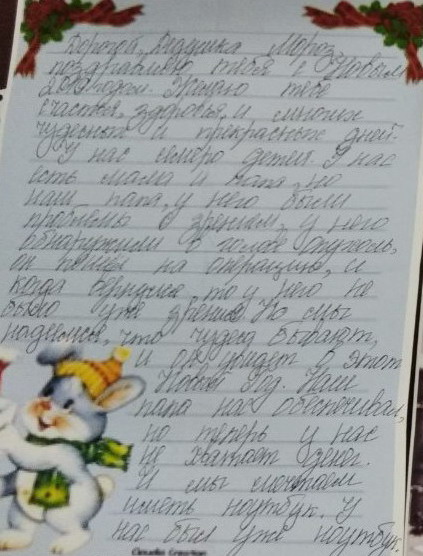 Дорогой, Дедушка Мороз,
поздравляю тебя с Новым
годом. Желаю тебе
счастья, здоровья, и многих
чудесных и прекрасных дней.
У нас семеро детей. У нас
есть мама и папа, но
наш папа, у него были
проблемы с зрением, у него
обнаружили в голове опухоль,
он пошёл на операцию, и
когда вернулся то у него не
было уже зрения. Но мы
надеимся, что чудеса бывают,
и он увидет в этот
Новый Год. Наш
папа нас обеспечивал,
но теперь у нас
не хватает денег.
И мы мечтаем
иметь ноутбук. У
нас был уже ноутбук,